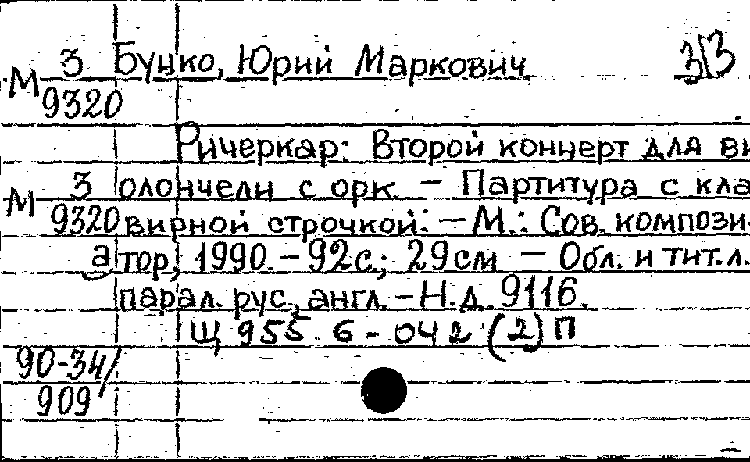 М 3/9320 Буцко, Юрий Маркович 313
Ричеркар: Второй концерт для ви
М 3/9320 а олончели с орк. — Партитура с кла
вирной строчкой. — М.: Сов. компози-
тор, 1990. — 92 с.; 29 см — Обл. и тит. л.
парал. рус., англ. — Н.д. 9116.
Щ 955.6-042 (2) П
90-34/
909